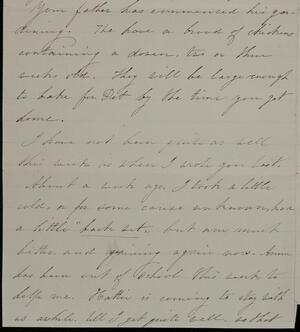 Your father has commenced his gar-
dening. We have a brood of chickens
containing a dozen, two or three
weeks old. They will be large enough
to bake for Det by the time you get
home.
I have not been quite as well
this week as when I wrote you last.
About a week ago, I took a little
cold, or for some cause unknown, had
a little "back set", but am much
better, and gaining again now. Anna
has been out of School this week to
help me. Hattie is coming to stay with
us awhile, till I get quite well, so that